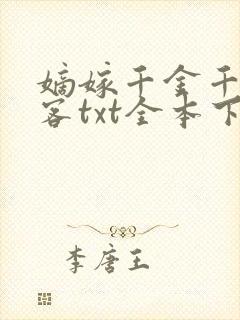 嫡嫁千金千
客txt全本下
李唐王